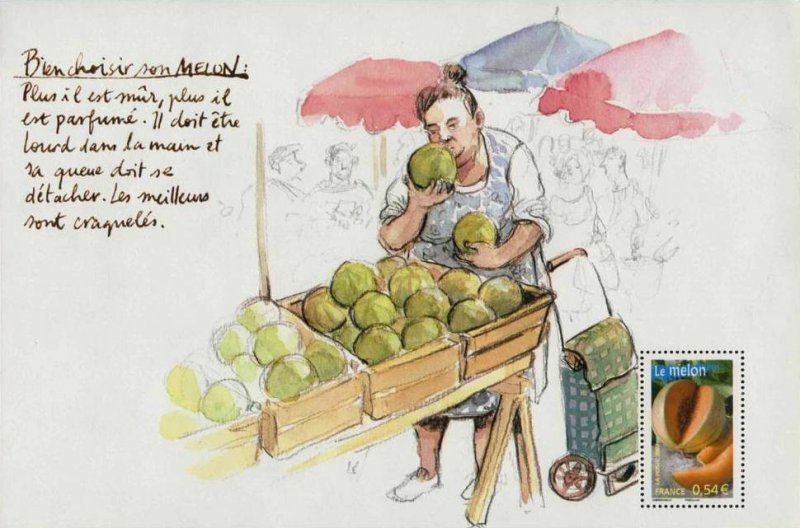 Bien choisir son MELON :
Plus il est mûr, plus il
est parfumé. Il doit être
lourd dans la main et
sa queue doit se
détacher. Les meilleurs
sont craquelés.
Le melon
LA POSTE
FRANCE 0,54 €